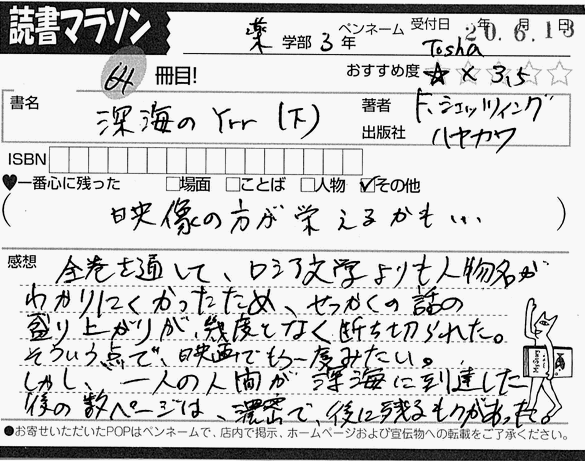 読書マラソン
薬 学部 3 年
ペンネーム Tosha
受付日 年 月 日
20.6.13
64 冊目!
おすすめ度 ☆ × 3,5 ☆☆☆
書名 深海のYrr (下)
著者 F.シェッツィング
出版社 ハヤカワ
ISBN
♥一番心に残った □場面 □ことば □人物 ☑その他
( 映像の方が栄えるかも… )
感想 全巻を通して、ロシア文学よりも人物名が
わかりにくかったため、せっかくの話の
盛り上がりが、幾度となく断ち切られた。
そういう点で、映画でもう一度みたい。
しかし、一人の人間が深海に到達した
後の数ページは、濃密で、後に残るものがあった。
●お寄せいただいたPOPはペンネームで、店内で掲示、ホームページおよび宣伝物への転載をご了承ください。